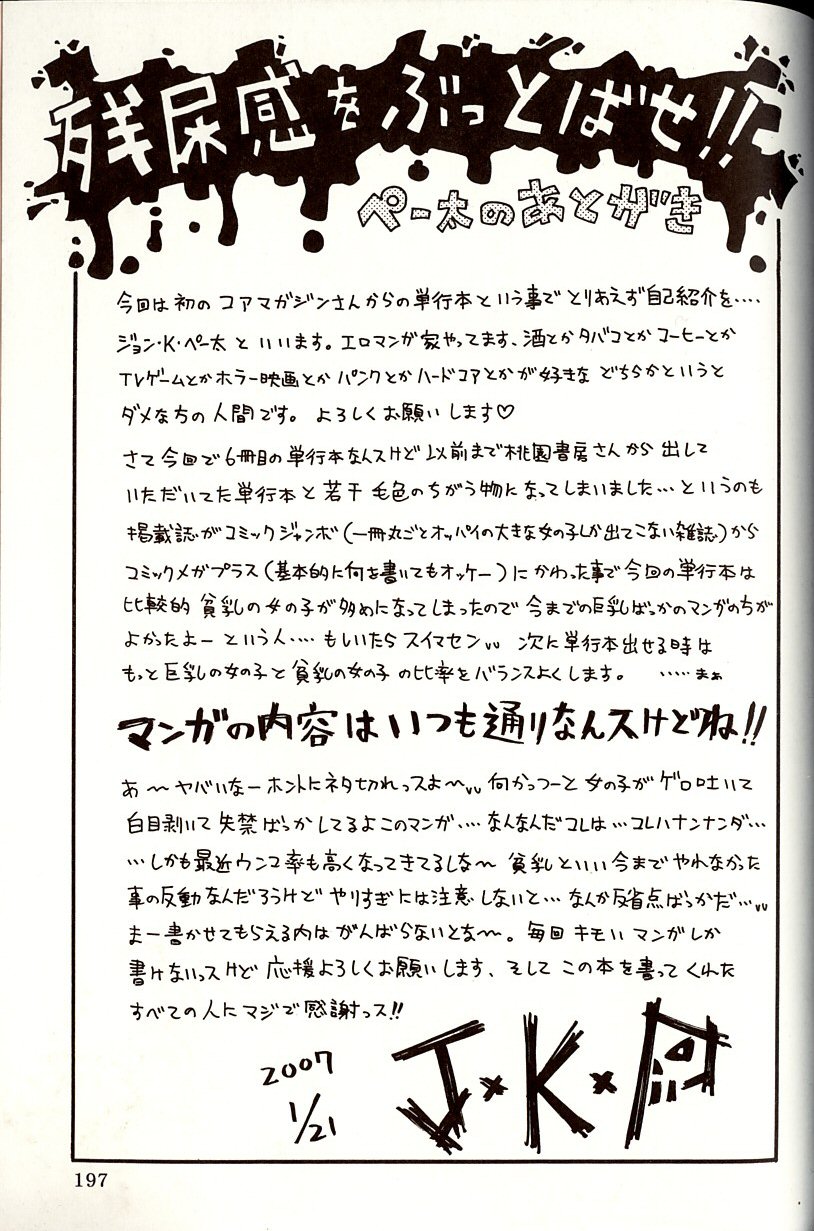 残尿感をぶっとばせ!!
ペー太のあとがき
今回は初の コアマガジンさんからの単行本という事で とりあえず自己紹介を‥‥
ジョン・K・ペー太 といいます。エロマンガ家やってます、酒とかタバコとかコーヒーとか
TVゲームとかホラー映画とか パンクとかハードコアとかが好きな どちらかというと
ダメなちの人間です。 よろしくお願いします♡
さて今回で6冊目の単行本なんスけど 以前まで桃園書房さんから出して
いただいてた単行本と若干 毛色のちがう物になってしまいました…というのも
掲載誌がコミックジャンボ(一冊丸ごとオッパイの大きな女の子しか出てこない雑誌)から
コミックメガプラス(基本的に何を書いてもオッケー)にかわった事で今回の単行本は
比較的 貧乳の女の子が多めになってしまったので 今までの巨乳ばっかのマンガのちが
よかったよー という人‥‥ もしいたら スイマセン 次に単行本出せる時は
もっと巨乳の女の子と貧乳の女の子の比率をバランスよくします。 ‥‥‥まぁ
マンガの内容はいつも通りなんスけどね!!
あ〜ヤバいなーホントにネタ切れっスよ〜 何かっつーと女の子が ゲロ吐いて
白目剥いて 失禁ばっかしてるよこのマンガ‥‥ なんなんだコレは…コレハナンナンダ…
…しかも最近ウンコ率も高くなってきてるしな〜 貧乳といい今までやれなかった
事の反動なんだろうけど やりすぎには注意しないと… なんか反省点ばっかだ…
まー書かせてもらえる内は がんばらないとな〜。毎回 キモいマンガしか
書けないっスけど 応援よろしくお願いします、そして この本を買ってくれた
すべての人にマジで感謝っス!!
2007
1/21
J×K×P
197